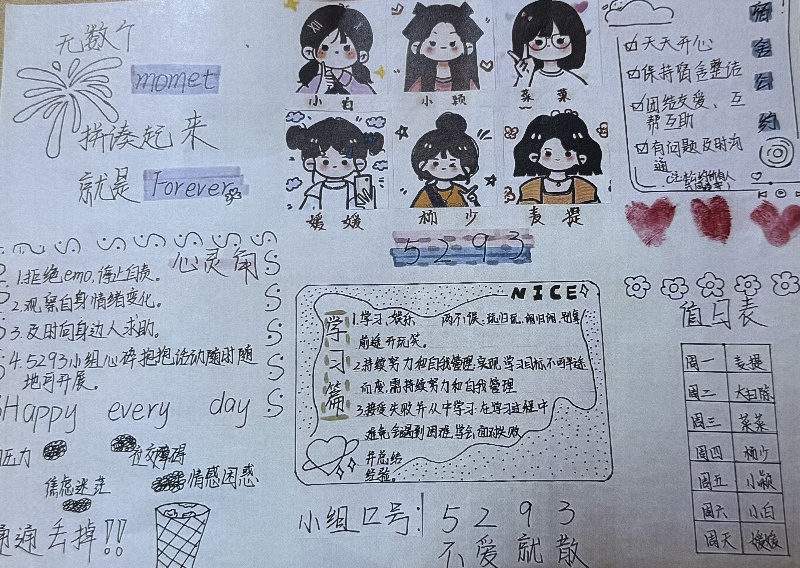 无数个
momet
拼凑起来
就是 Forever
小白 小颖 菜菜
媛媛 杨少 麦提
5293
宿舍公约
天天开心
保持宿舍整洁
团结友爱、互
帮互助
有问题及时沟
通
心灵角
1.拒绝emo,停止自责。
2.观察自身情绪变化。
3.及时向身边人求助。
4.5293小组心碎抱抱活动随时随
地可开展。
Happy every day
压力
社交障碍
焦虑迷茫
情感困惑
通通丢掉!!
NICE
学习篇
1.学习、娱乐 两不误:玩归玩,闹归闹,别拿
前途开玩笑。
2.持续努力和自我管理:实现学习目标不可半途
而废,需持续努力和自我管理
3.接受失败并从中学习:在学习过程中
难免会遇到困难,学会面对失败
并总结
经验。
小组口号: 5293
不爱就散
值日表
周一 麦提
周二
周三 菜菜
周四 杨少
周五 小颖
周六 小白
周天 媛媛